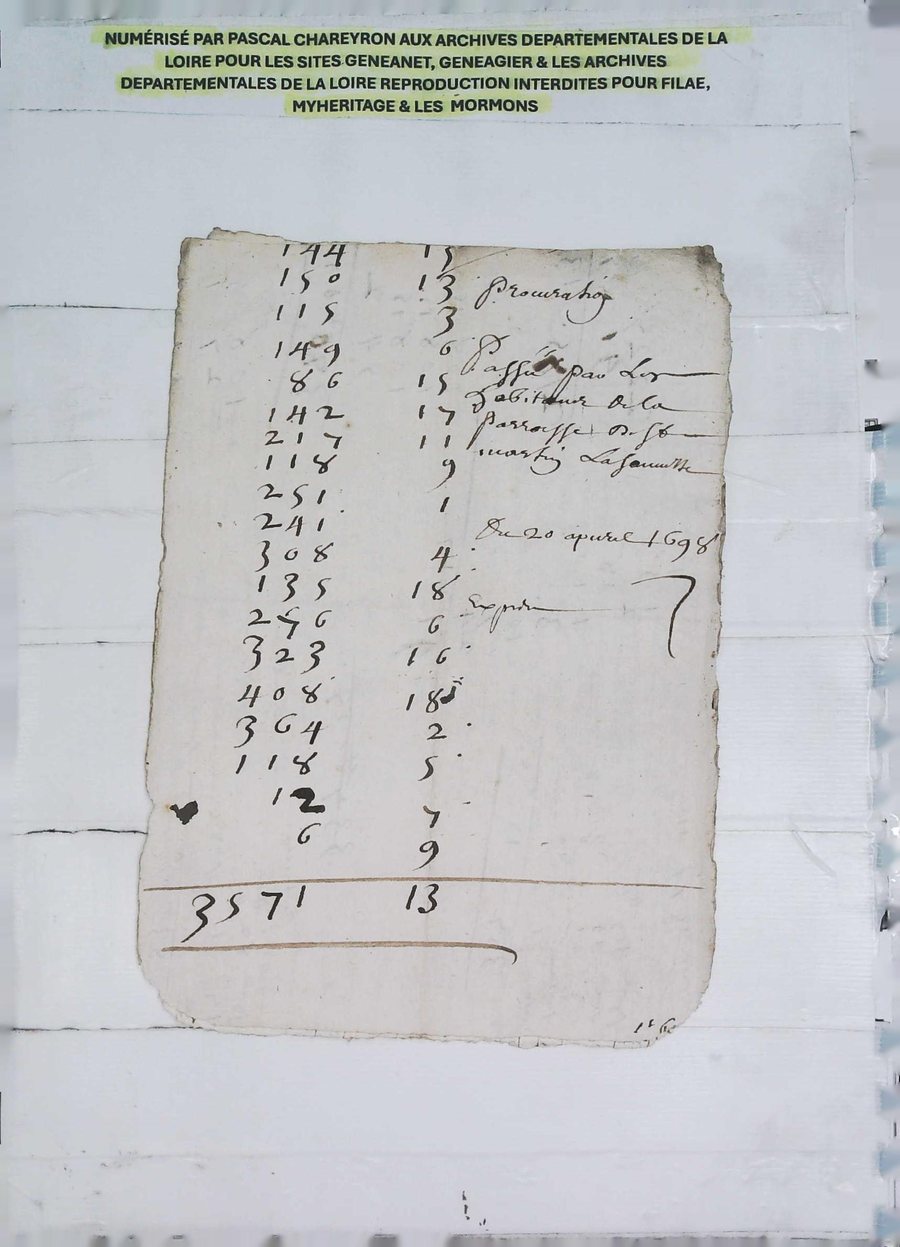 NUMÉRISÉ PAR PASCAL CHAREYRON AUX ARCHIVES DEPARTEMENTALES DE LA
LOIRE POUR LES SITES GENEANET, GENEAGIER & LES ARCHIVES
DEPARTEMENTALES DE LA LOIRE REPRODUCTION INTERDITES POUR FILAE,
MYHERITAGE & LES MORMONS
144 15
150 13
115 3
149 6
86 15
142 17
217 11
118 9
251 1
241
308 4
135 18
256 6
323 16
408 18
364 2
118 5
12 7
6 9
3571 13
procuration
Passée par Les
habitans de la
parroisse de St
martin
Du 20 apvril 1698